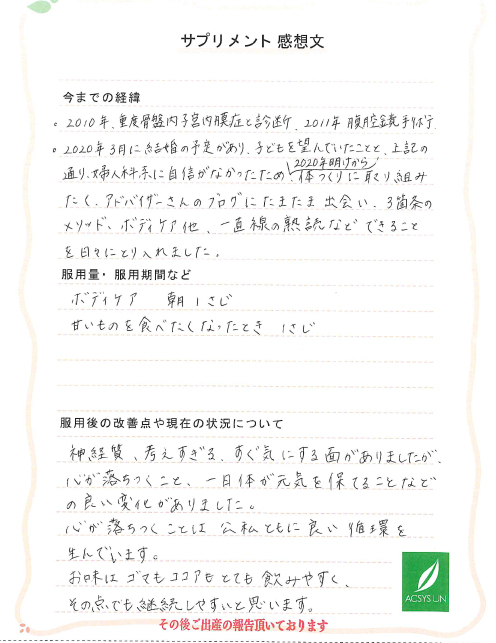 サプリメント 感想文
今までの経緯
。2010年、重度骨盤内子宮内膜症と診断、2011年腹腔鏡手術
。2020年3月に結婚の予定があり、子どもを望んでいたことと、上記の
2020年明けから
通り、婦人科系に自信がなかったため、体づくりに取り組み
たく、アドバイザーさんのブログにたまたま出会い、3箇条の
メソッド、ボディケア他、一直線の熟読などできること
を日々にとり入れました。
服用量・服用期間など
ボディケア 朝1さじ
甘いものを食べたくなったとき 1さじ
服用後の改善点や現在の状況について
神経質、考えすぎる、すぐ気にする面がありましたが、
心が落ちつくこと、一日体が元気を保てることなど
の良い変化がありました。
心が落ちつくことは公私ともに良い循環を
生んでいます。
お味はゴマもココアもとても飲みやすく、
その点でも継続しやすいと思います。
ACSYS LIN
その後ご出産の報告頂いております